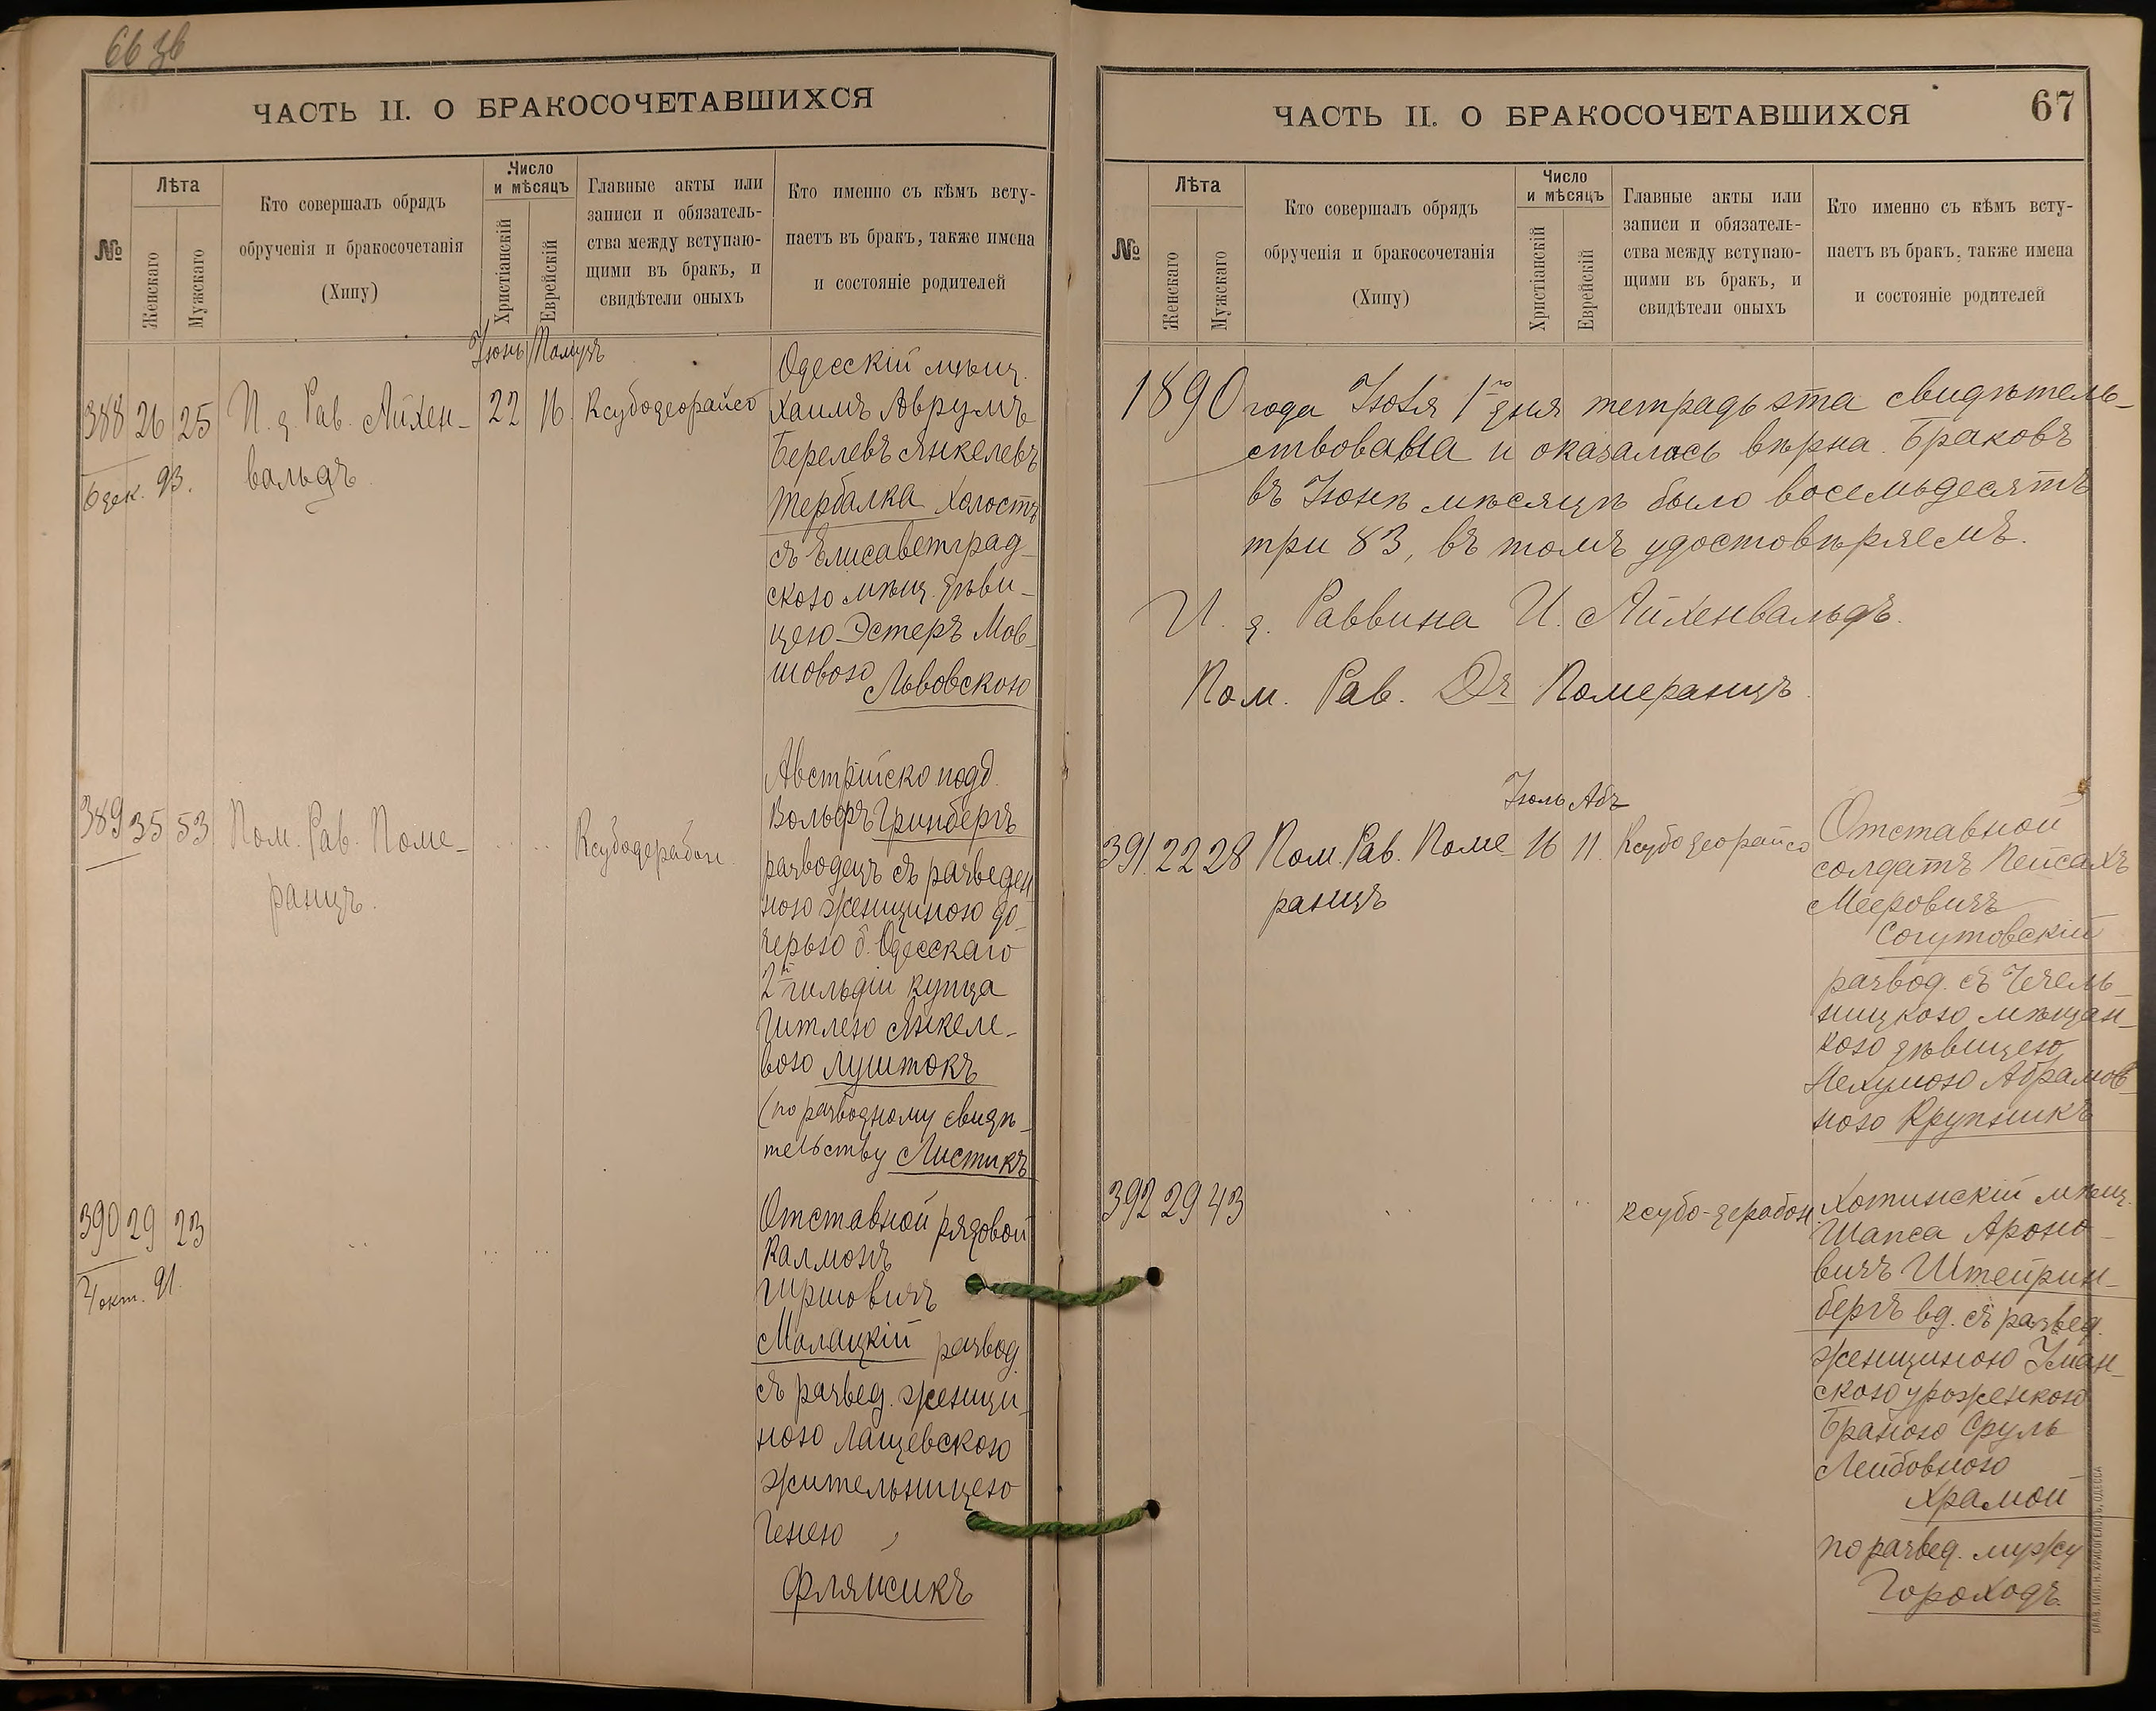 66 зв
ЧАСТЬ II. О БРАКОСОЧЕТАВШИХСЯ
№
Лѣта
Женскаго
Мужскаго
Кто совершалъ обрядъ
обрученія и бракосочетанія
(Хипу)
Число
и мѣсяцъ
Христіанскій
Еврейскій
Главные акты или
записи и обязатель-
ства между вступаю-
щими въ бракъ, и
свидѣтели оныхъ
Кто именно съ кѣмъ всту-
паетъ въ бракъ, также имена
и состояніе родителей
Іюнь Тамузъ
388 26 25 И. д. Рав. Айхен-
вальдъ
22 16. Ксубодеорайсо
6 дек. 93.
Одесскій мѣщ.
Хаимъ Аврумъ
Берелевъ Янкелевъ
Щербалка холостъ
съ Елисаветград-
скою мѣщ. дѣви-
цею Эстеръ Мов-
шовою Львовскою
389 35 53 Пом. Рав. Поме-
ранцъ.
Ксубодерабон.
Австрійско подд.
Вольфъ Гринбергъ
разводецъ съ разведен
ною женщиною до-
черью б. Одесскаго
2й гильдіи купца
Гитлею Янкеле-
вою Луштокъ
(по разводному свидѣ-
тельству Листикъ
390 29 23
4 окт. 91.
Отставной рядовой
Калмонъ
Гиршовичъ
Малацкій развод.
съ развед. женщи-
ною Лащевскою
жительницею
Генею
Фляксикъ
ЧАСТЬ II. О БРАКОСОЧЕТАВШИХСЯ
67
№
Лѣта
Женскаго
Мужскаго
Кто совершалъ обрядъ
обрученія и бракосочетанія
(Хипу)
Число
и мѣсяцъ
Христіанскій
Еврейскій
Главные акты или
записи и обязатель-
ства между вступаю-
щими въ бракъ, и
свидѣтели оныхъ
Кто именно съ кѣмъ всту-
паетъ въ бракъ, также имена
и состояніе родителей
1890 года Іюля 1го дня тетрадь эта свидѣтель-
ствована и оказалась вѣрна. Браковъ
въ Іюнѣ мѣсяцѣ было восемьдесятъ
три 83, въ томъ удостовѣряемъ.
И. д. Раввина И. Айхенвальдъ.
Пом. Рав. Др Померанцъ.
Іюль Абъ
391. 22 28 Пом. Рав. Поме
ранцъ
16 11. Ксубодеорайсо
Отставной
солдатъ Пейсахъ
Мееровичъ
Согутовскій
развод. съ Чечель-
ницкою мѣщан-
кою дѣвицею
Нехумою Абрамов-
ною Крупникъ
392 29 43
ксубо-дерабон.
Хотинскій мѣщ.
Шапса Ароно-
вичъ Штейрин-
бергъ вд. съ развед.
женщиною Уман-
скою уроженкою
Браною Сруль
Лейбовною
Храмой
по развед. мужу
Гороходъ.
СЛАВ. ТИП. Н. ХРИСОГЕЛОСЪ, ОДЕССА